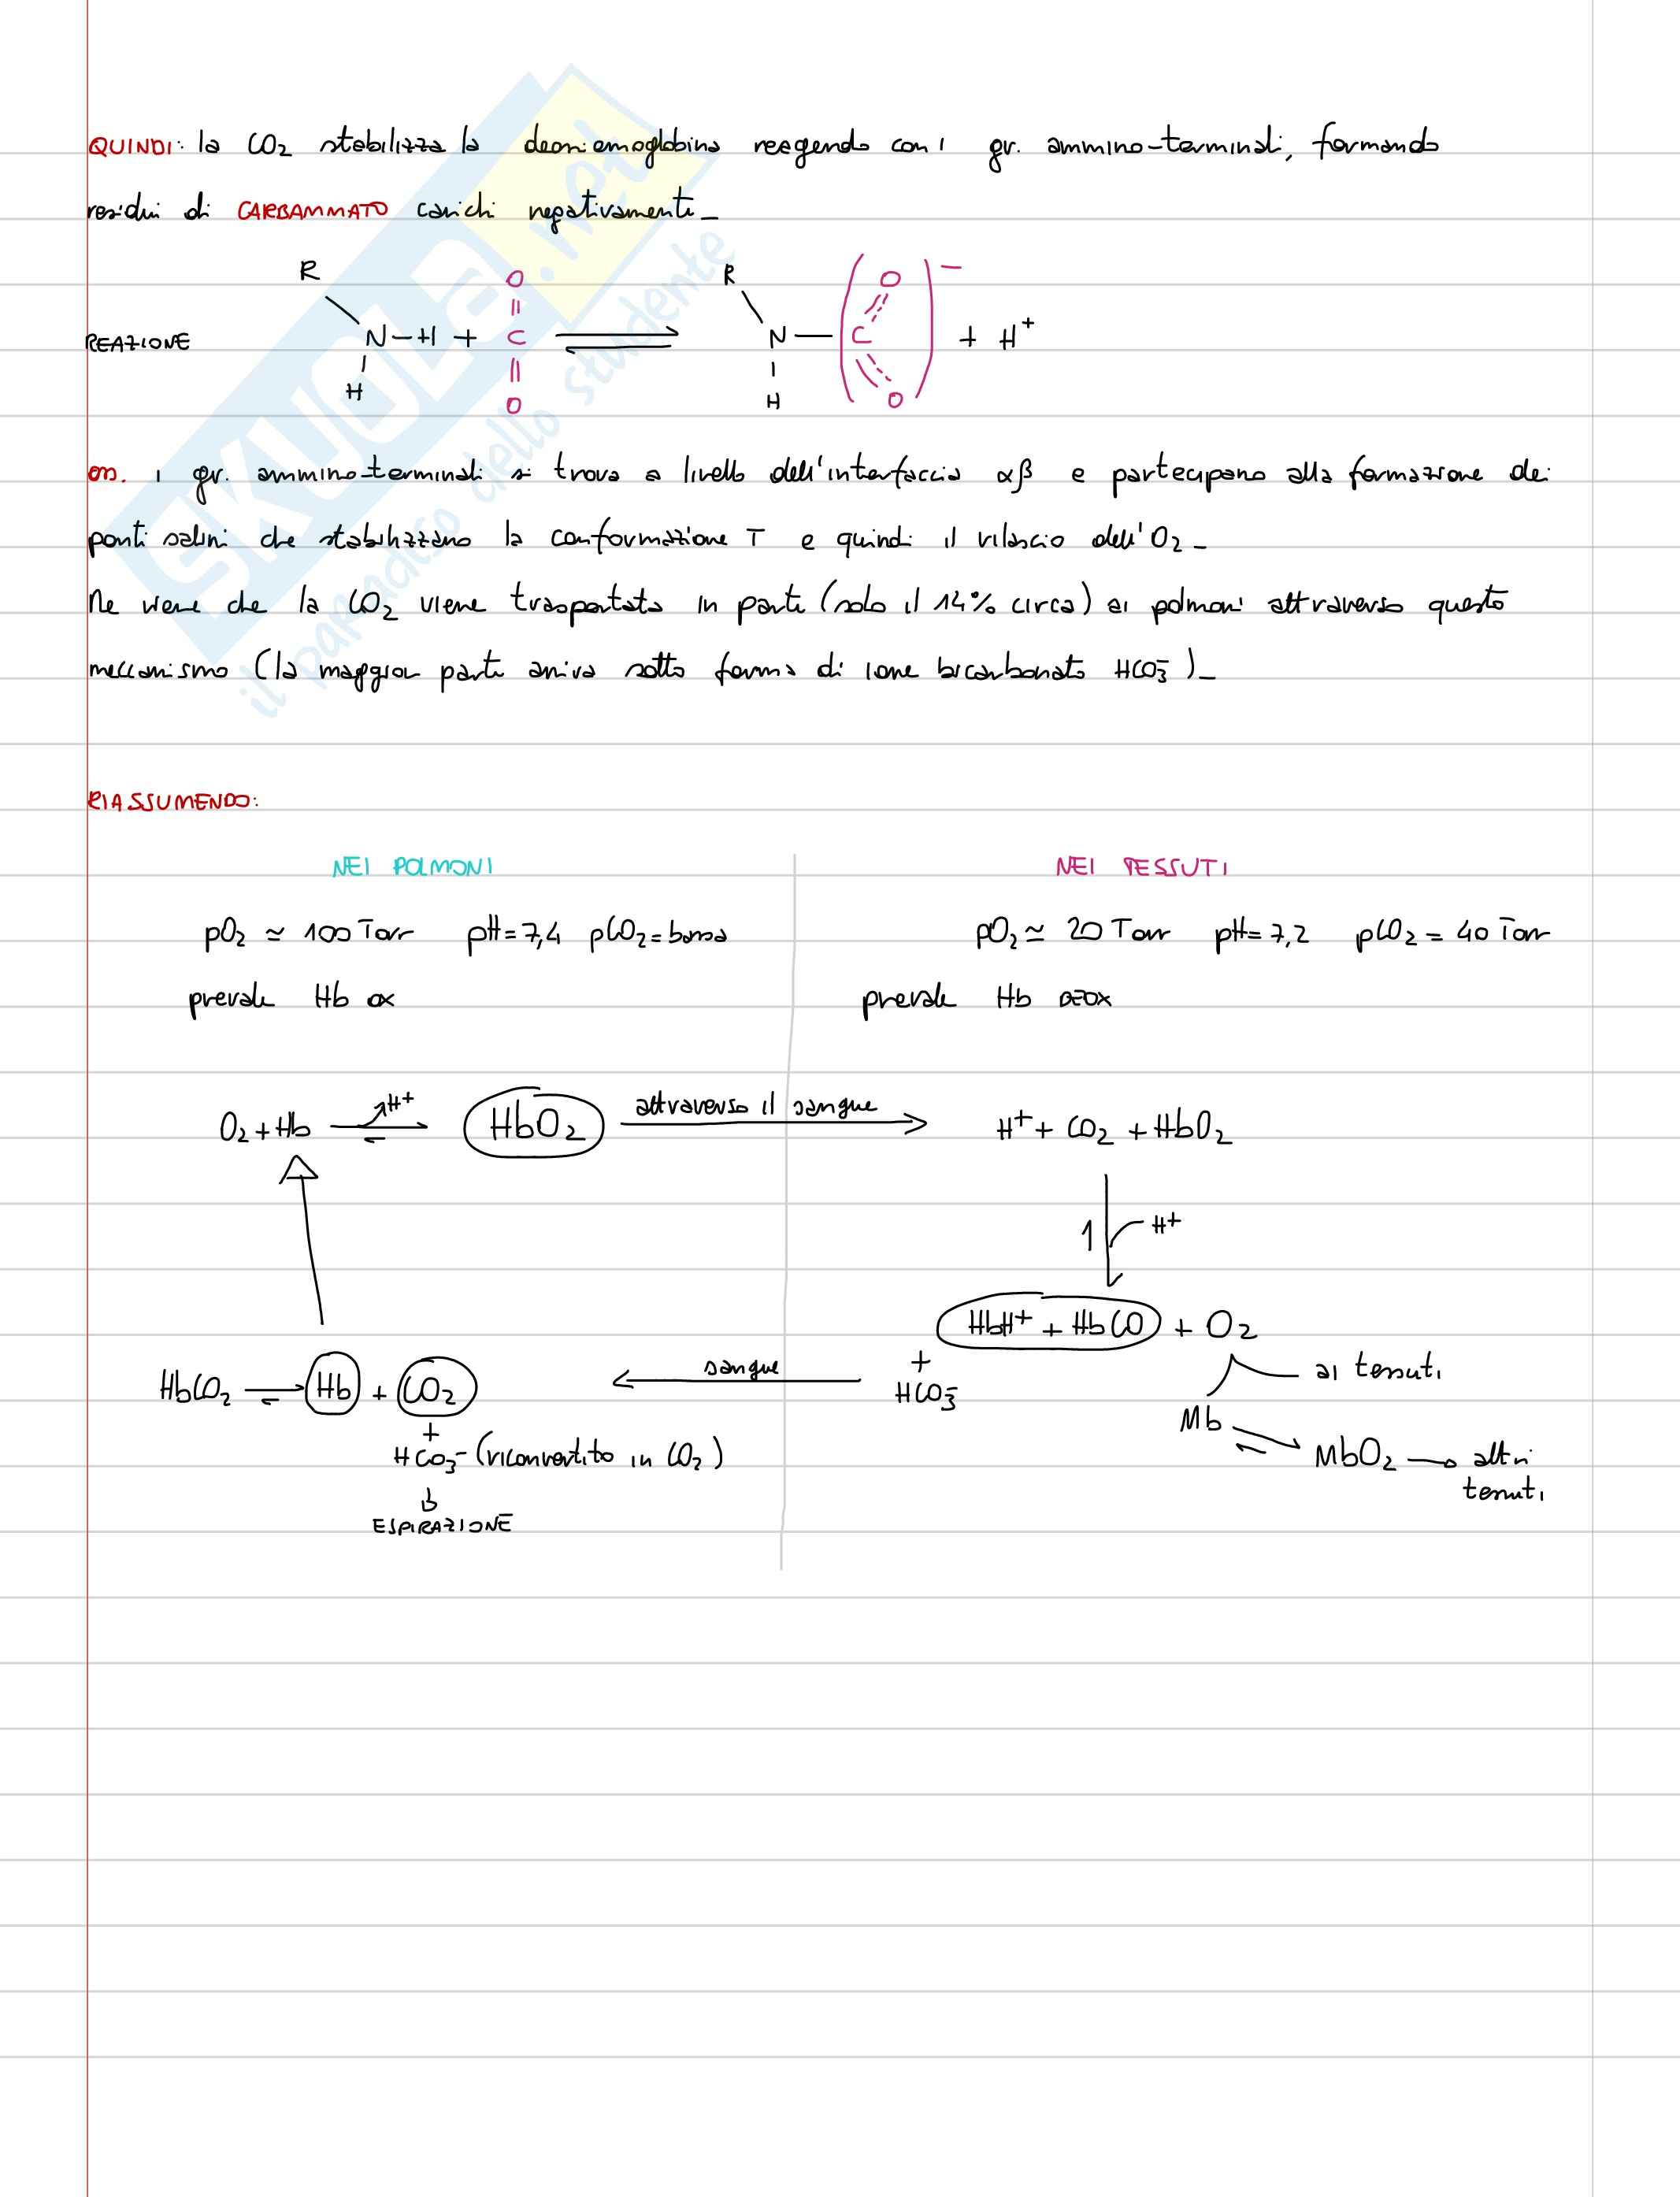 QUINDI: la CO2 stabilizza la deossiemoglobina reagendo con i gr. ammino-terminali, formando
residui di CARBAMMATO carichi negativamente_
R O R O −
REAZIONE N-H + C ⇌ N — C + H+
H O H O
oss. i gr. ammino-terminali si trova a livello dell'interfaccia αβ e partecipano alla formazione dei
ponti salini che stabilizzano la conformazione T e quindi il rilascio dell'O2_
Ne viene che la CO2 viene trasportata in parte (solo il 14% circa) ai polmoni attraverso questo
meccanismo (la maggior parte arriva sotto forma di ione bicarbonato HCO3-)_
RIASSUMENDO:
NEI POLMONI NEI TESSUTI
pO2 ≃ 100 Torr pH=7,4 pCO2=bassa pO2 ≃ 20 Torr pH=7,2 pCO2 = 40 Torr
prevale Hb ox prevale Hb DEOX
O2+Hb ⇌ H+ HbO2 attraverso il sangue → H+ + CO2 + HbO2
1 H+
HbH+ + HbCO + O2
HbCO2 ⇌ Hb + CO2 ← sangue + HCO3- ai tessuti
+ Mb
HCO3- (riconvertito in CO2) ⇌ MbO2 → altri
tessuti
ESPIRAZIONE
SKUOLA.net
il paradiso dello studente